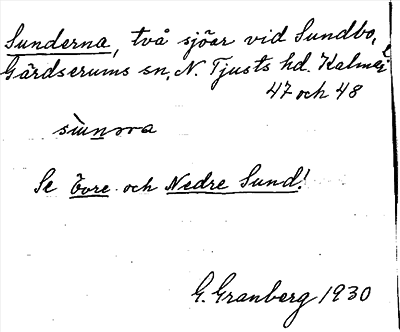 Sunderna, två sjöar vid Sundbo,
Gärdserums sn, N. Tjusts hd. Kalmar l
47 och 48
sùnnra
Se Övre och Nedre Sund!
G. Granberg 1930